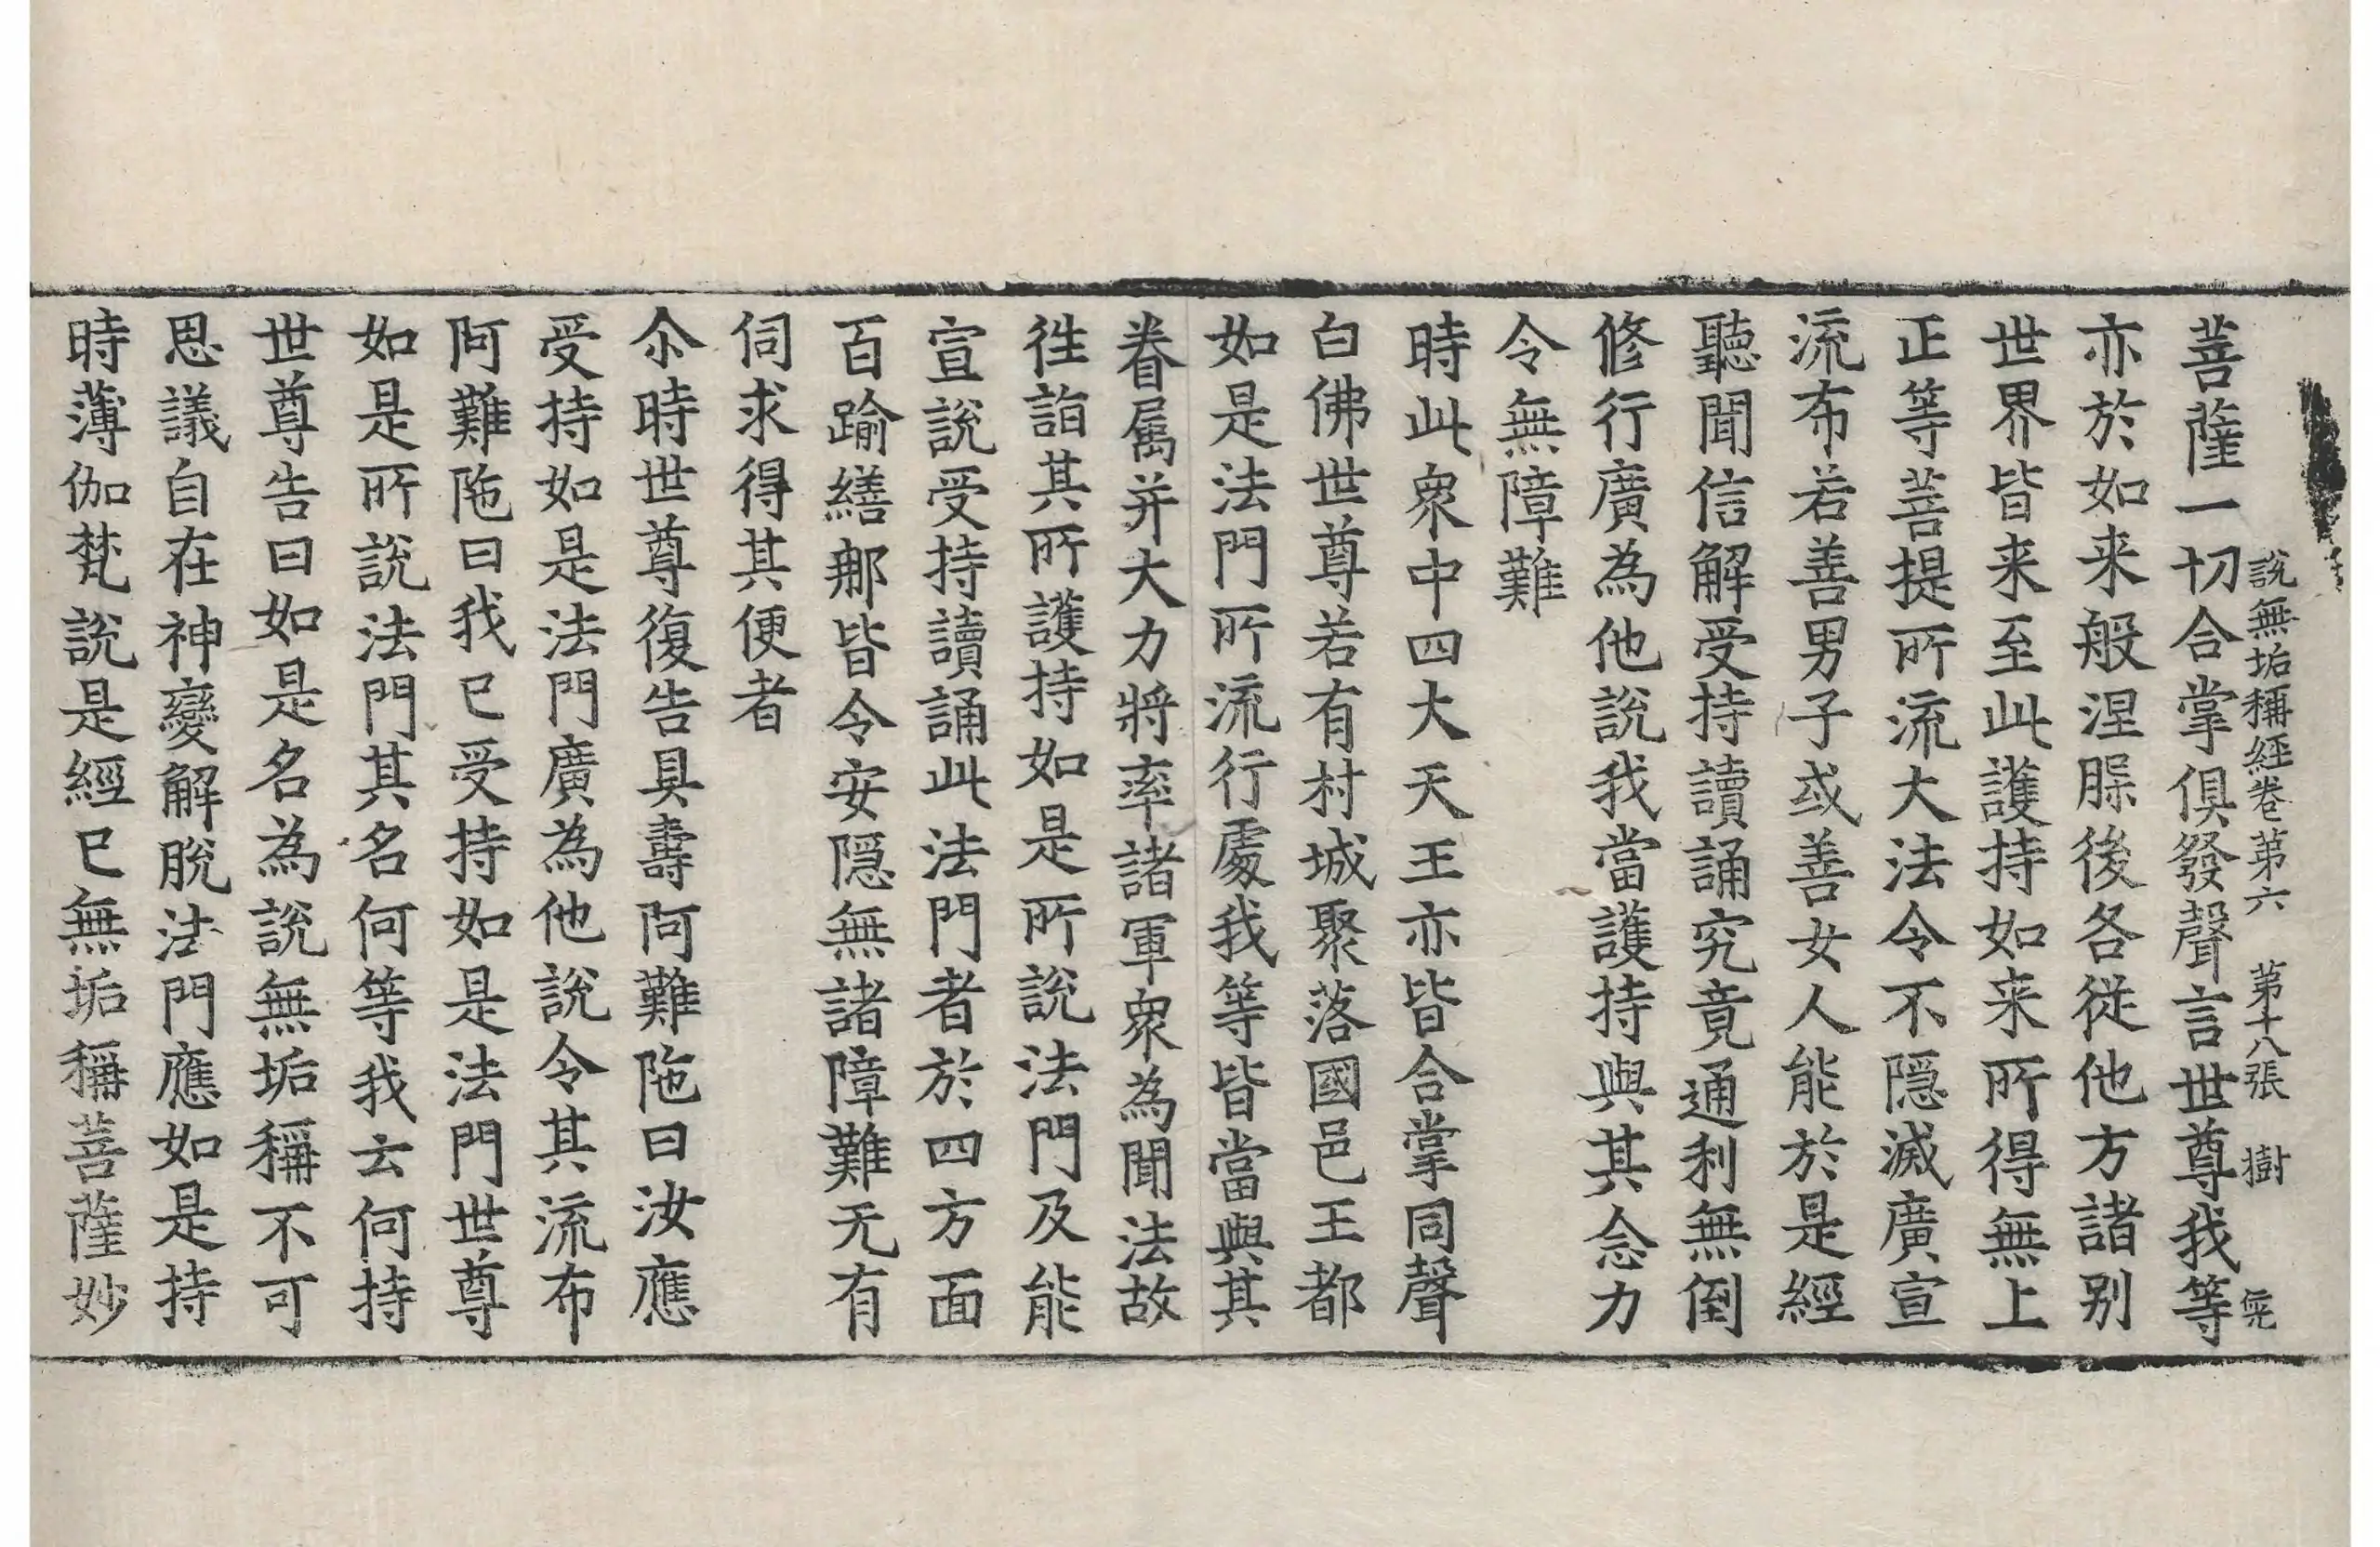 說無垢稱經卷第六 第十八張 樹
菩薩一切合掌俱發聲言世尊我等
亦於如来般涅槃後各從他方諸別
世界皆来至此護持如来所得無上
正等菩提所流大法令不隱滅廣宣
流布若善男子或善女人能於是經
聽聞信解受持讀誦究竟通利無倒
修行廣為他說我當護持與其念力
令無障難
時此衆中四大天王亦皆合掌同聲
白佛世尊若有村城聚落國邑王都
如是法門所流行處我等皆當與其
眷屬并大力將率諸軍衆為聞法故
往詣其所護持如是所說法門及能
宣說受持讀誦此法門者於四方面
百踰繕那皆令安隱無諸障難无有
伺求得其便者
尒時世尊復告具壽阿難陁曰汝應
受持如是法門廣為他說令其流布
阿難陁曰我已受持如是法門世尊
如是所說法門其名何等我云何持
世尊告曰如是名為說無垢稱不可
思議自在神變解脫法門應如是持
時薄伽梵說是經已無垢稱菩薩妙